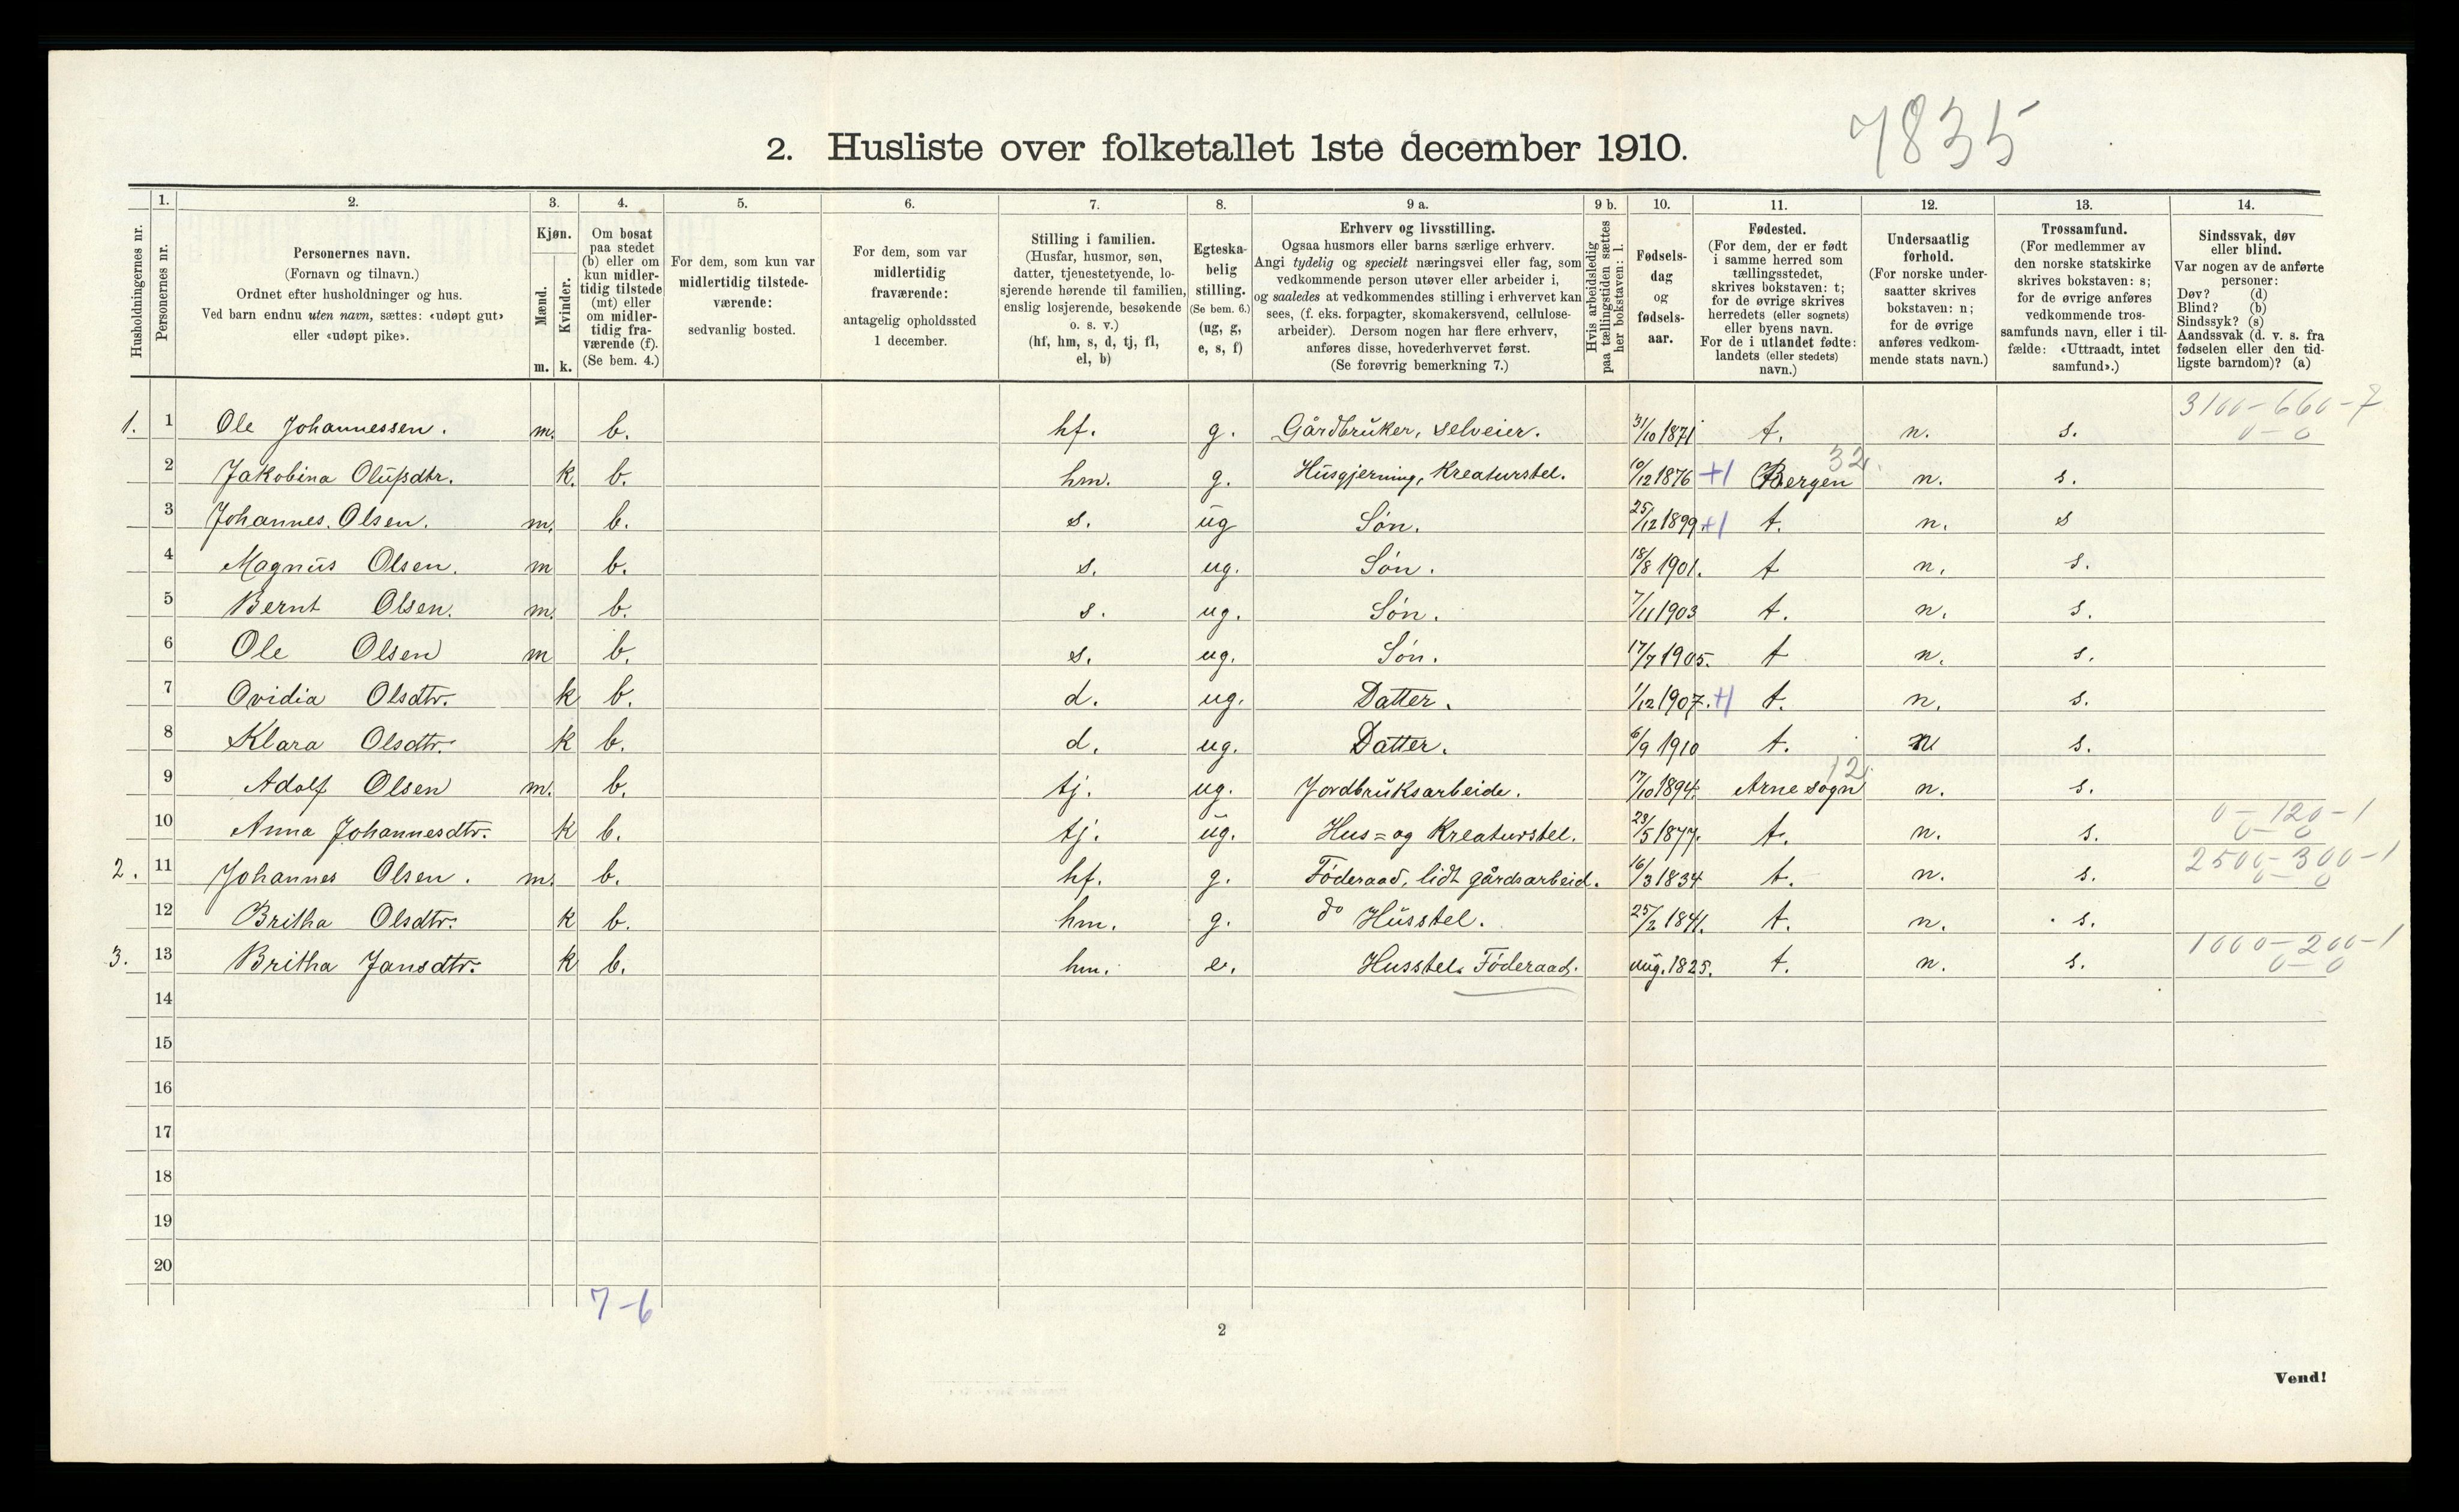 7835
2. Husliste over folketallet 1ste december 1910.
Husholdningernes nr.
1.
Personernes nr.
2.
Personernes navn.
(Fornavn og tilnavn.)
Ordnet efter husholdninger og hus.
Ved barn endnu uten navn, sættes: «udøpt gut»
eller «udøpt pike».
3.
Kjøn.
Mænd.
Kvinder.
m. k.
4.
Om bosat
paa stedet
(b) eller om
kun midler-
tidig tilstede
(mt) eller
om midler-
tidig fra-
værende (f).
(Se bem. 4.)
5.
For dem, som kun var
midlertidig tilstede-
værende:
sedvanlig bosted.
6.
For dem, som var
midlertidig
fraværende:
antagelig opholdssted
1 december.
7.
Stilling i familien.
(Husfar, husmor, søn,
datter, tjenestetyende, lo-
sjerende hørende til familien,
enslig losjerende, besøkende
o. s. v.)
(hf, hm, s, d, tj, fl,
el, b)
8.
Egteska-
belig
stilling.
(Se bem. 6.)
(ug, g,
e, s, f)
9 a.
Erhverv og livsstilling.
Ogsaa husmors eller barns særlige erhverv.
Angi tydelig og specielt næringsvei eller fag, som
vedkommende person utøver eller arbeider i,
og saaledes at vedkommendes stilling i erhvervet kan
sees, (f. eks. forpagter, skomakersvend, cellulose-
arbeider). Dersom nogen har flere erhverv,
anføres disse, hovederhvervet først.
(Se forøvrig bemerkning 7.)
9 b.
Hvis arbeidsledig
paa tællingstiden sættes
her bokstaven: l.
10.
Fødsels-
dag
og
fødsels-
aar.
11.
Fødested.
(For dem, der er født
i samme herred som
tællingsstedet,
skrives bokstaven: t;
for de øvrige skrives
herredets (eller sognets)
eller byens navn.
For de i utlandet fødte:
landets (eller stedets)
navn.)
12.
Undersaatlig
forhold.
(For norske under-
saatter skrives
bokstaven: n;
for de øvrige
anføres vedkom-
mende stats navn.)
13.
Trossamfund.
(For medlemmer av
den norske statskirke
skrives bokstaven: s;
for de øvrige anføres
vedkommende tros-
samfunds navn, eller i til-
fælde: «Uttraadt, intet
samfund».)
14.
Sindssvak, døv
eller blind.
Var nogen av de anførte
personer:
Døv? (d)
Blind? (b)
Sindssyk? (s)
Aandssvak (d. v. s. fra
fødselen eller den tid-
ligste barndom)? (a)
1. 1 Ole Johannessen. m. b. hf. g. Gårdbruker, selveier. 31/10 1871 t. n. s. 3100-660-7 0-0
2 Jakobina Olufsdtr. k. b. hm. g. Husgjerning, Kreaturstel. 10/12 1876 +1 Bergen 32. n. s.
3 Johannes. Olsen. m. b. s. ug Søn. 25/12 1899. +1 t. n. s
4 Magnus Olsen. m b. s. ug. Søn. 18/8 1901. t n. s.
5 Bernt Olsen. m. b. s. ug. Søn. 7/11 1903 t. n. s.
6 Ole Olsen m b. s. ug. Søn. 17/7 1905. t n. s.
7 Ovidia Olsdtr. k b. d. ug. Datter. 1/12 1907. +1 t. n. s.
8 Klara Olsdtr. k b. d. ug. Datter. 6/9 1910 t. n s.
9 Adolf Olsen m. b. tj. ug. Jordbruksarbeide. 17/10 1894. Arne sogn 12. n. s.
10 Anna Johannesdtr. k b. tj. ug. Hus= og Kreaturstel. 23/5 1877. t. n. s. 0-120-1 0-0
2. 11 Johannes Olsen. m. b. hf. g. Føderaad, lidt gårdsarbeid. 16/3 1834 t. n. s. 2500-300-1 0-0
12 Britha Olsdtr. k b. hm. g. do Husstel. 25/2 1841. t. n. s.
3. 13 Britha Jansdtr. k b. hm. e. Husstel. Føderaad. aug. 1825. t. n. s. 1000-200-1 0-0
14
15
16
17
18
19
20
7-6
2
Vend!